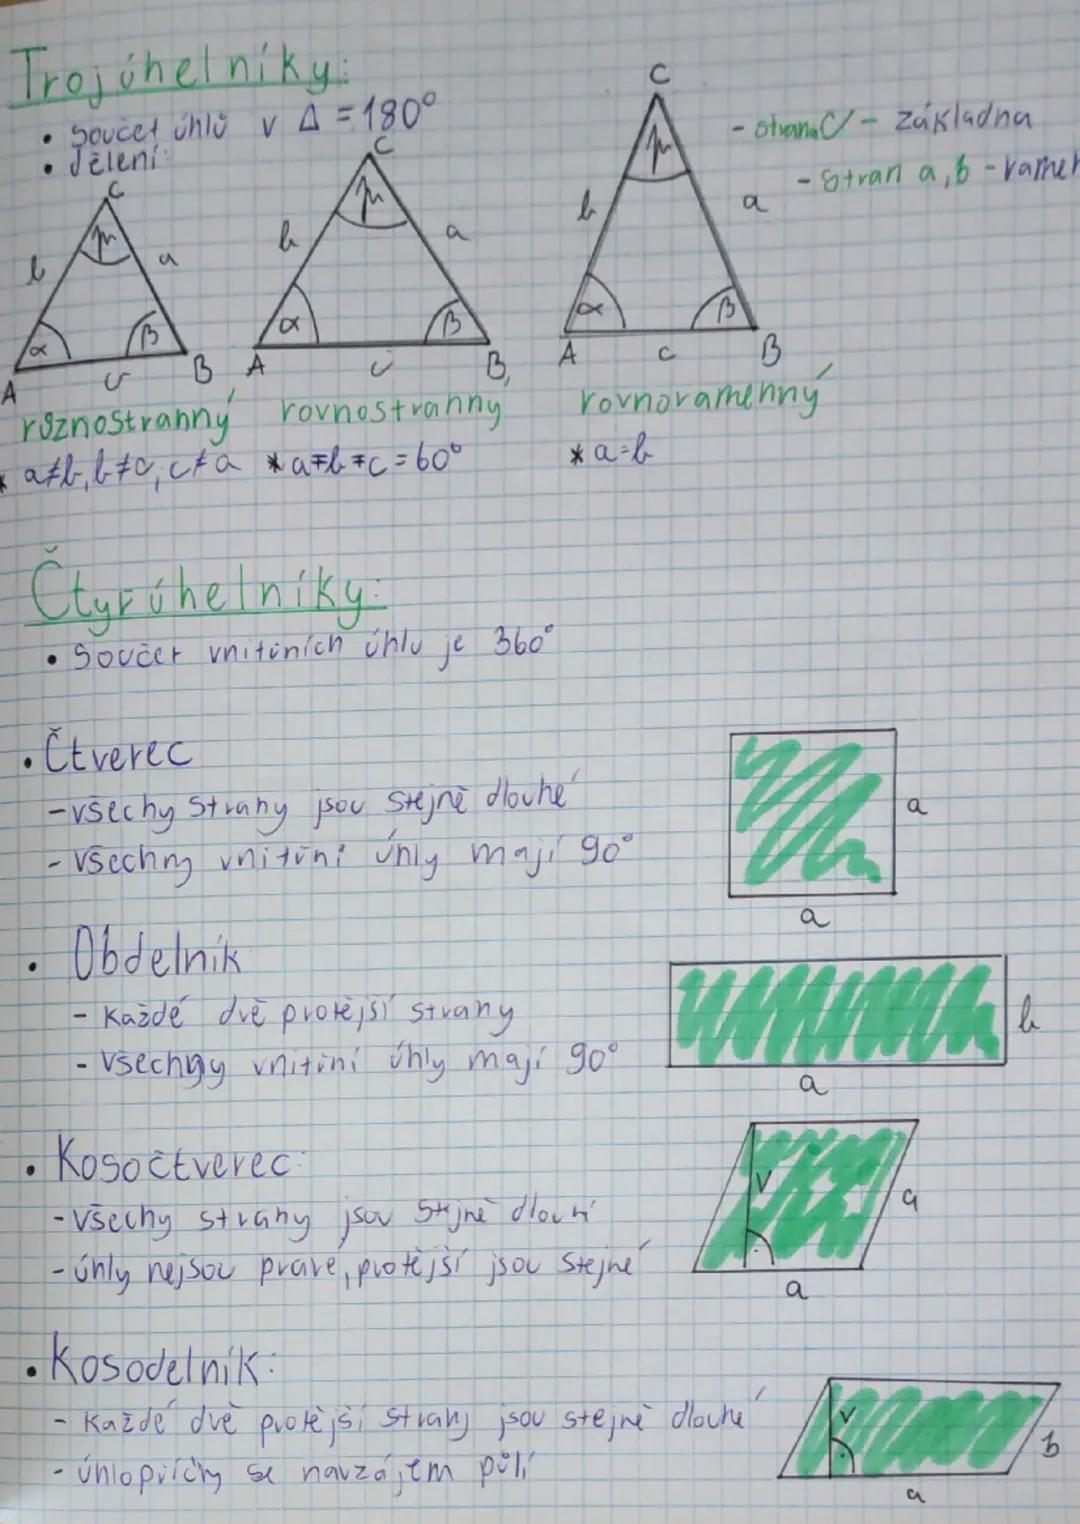 Trojúhelníky:
• Součet úhlů v Δ = 180°
• dělení:
C
b
a
α
β
A
c
B
C
b
a
α
β
A
c
B
C
b
a
α
β
A
c
B
- strana C - základna
- stran a, b - ramen
různostranný
rovnostranný
rovnoramenný
* a≠b, b≠c, c≠a
* a=b=c=60°
* a=b
Čtyrúhelníky:
• Součet vnitřních úhlu je 360°
• Čtverec
- všechy strany jsou stejně dlouhé
- všechny vnitřní úhly mají 90°
a
a
• Obdelník
- Každé dvě protější strany
- všechny vnitřní úhly mají 90°
b
a
• Kosočtverec:
- všechy strany jsou stejně dlouhé
- úhly nejsou pravé, protější jsou stejné
v
a
a
• Kosodelník:
- Každé dvě protější strany jsou stejně dlouhé
- úhlopříčny se navzájem půlí
v
b
a